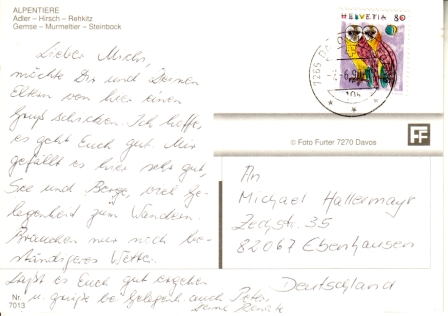 ALPENTIERE
Adler – Hirsch – Rehkitz
Gemse – Murmeltier – Steinbock
Lieber Michi,
möchte Dir und Deinen
Eltern von hier einen
Gruß schicken. Ich hoffe,
es geht Euch gut. Mir
gefällt es hier sehr gut,
See und Berge, viel Ge-
legenheit zum Wandern.
Brauchen nur noch be-
ständigeres Wetter.
Laßt es Euch gut ergehen
u. grüße bei Gelegenh. auch Peter
Deine
Nr.
7013
HELVETIA 80
7265
© Foto Furter 7270 Davos
FF
An
Michael Hallermayr
Zechstr. 35
82067 Ebenhausen
Deutschland